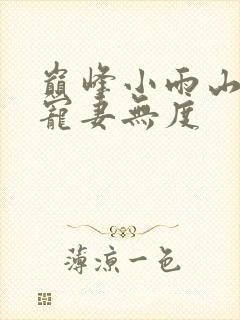 巔峰小雨山
寵妻無度
薄涼一色